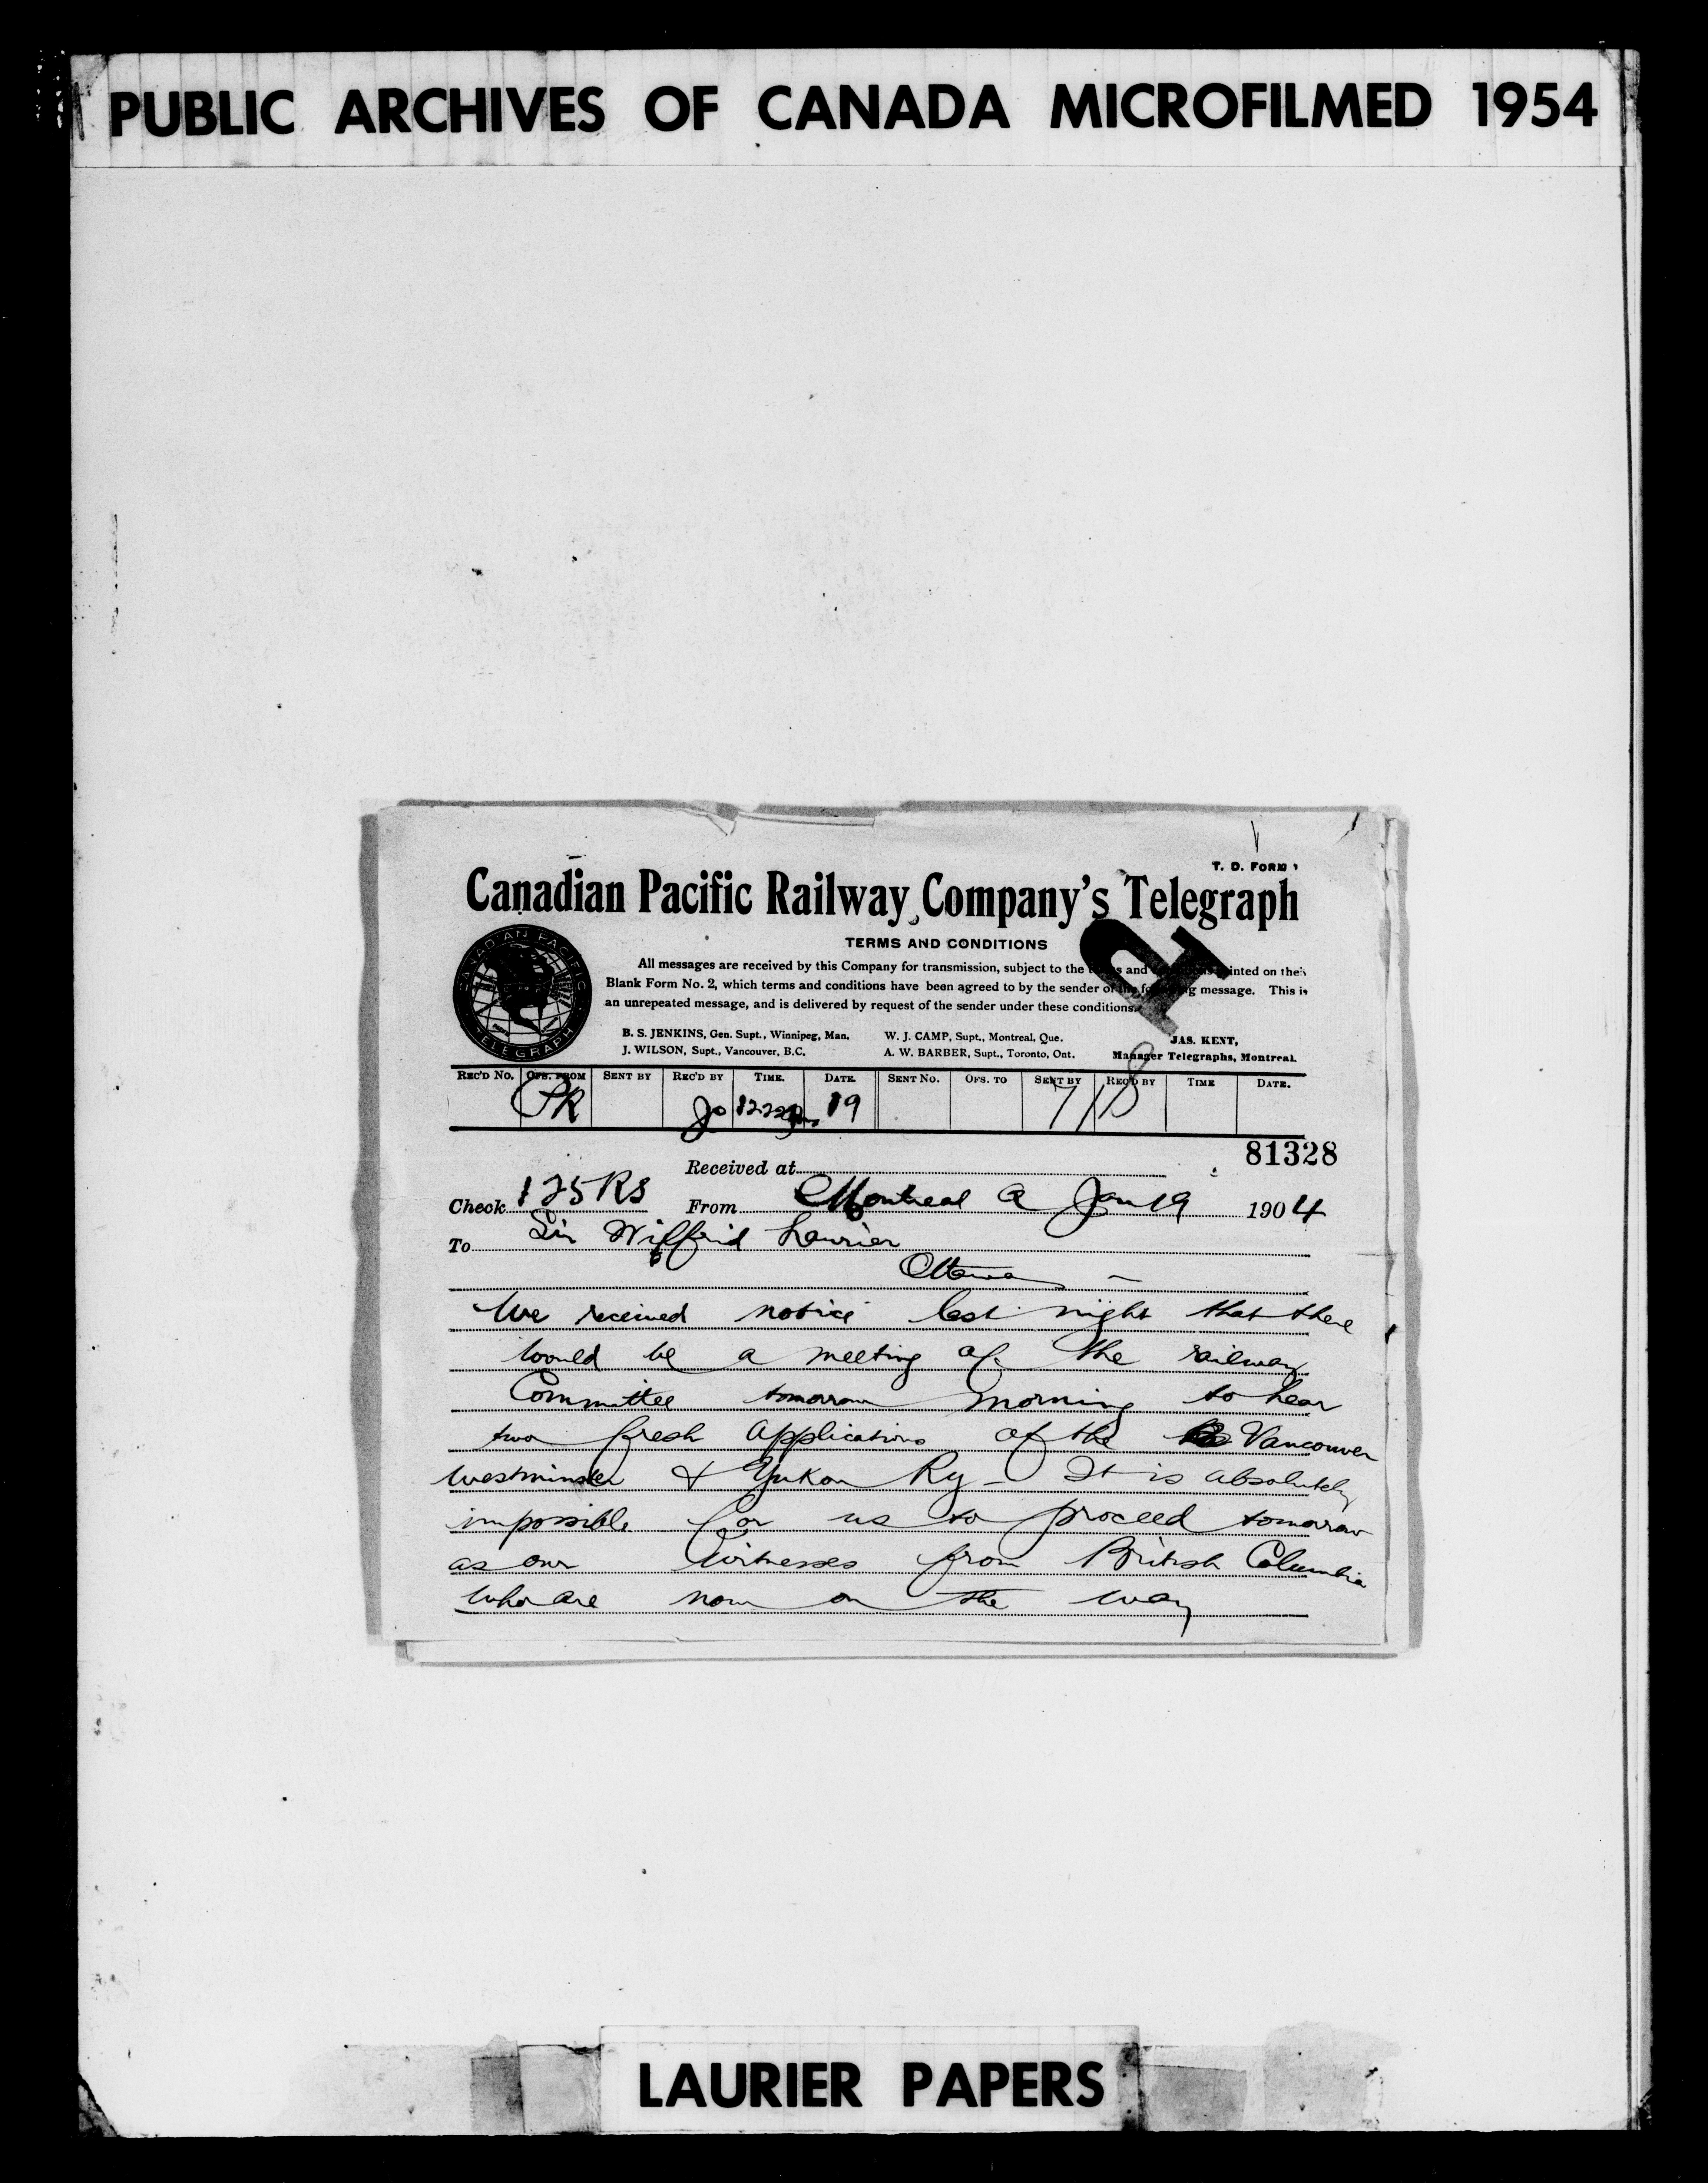 PUBLIC ARCHIVES OF CANADA MICROFILMED 1954
T. D. FORM 1
Canadian Pacific Railway Company's Telegraph
CANADIAN PACIFIC TELEGRAPH
TERMS AND CONDITIONS
All messages are received by this Company for transmission, subject to the and printed on the
Blank Form No. 2, which terms and conditions have been agreed to by the sender of the following message. This is
an unrepeated message, and is delivered by request of the sender under these conditions.
B. S. JENKINS, Gen. Supt., Winnipeg, Man. W. J. CAMP, Supt., Montreal, Que. JAS. KENT,
J. WILSON, Supt., Vancouver, B.C. A. W. BARBER, Supt., Toronto, Ont. Manager Telegraphs, Montreal.
REC'D No. OFS. FROM SENT BY REC'D BY TIME. DATE. SENT No. OFS. TO SENT BY REC'D BY TIME DATE.
PK Jo 19
81328
Received at
Check 125 RS From Montreal Q Jan 19 1904
To Sir Wilfrid Laurier
Ottawa
We received notice last night that there
would be a meeting of the railway
Committee tomorrow morning to hear
two fresh applications of the Vancouver
Westminster & Yukon Ry - It is absolutely
impossible for us to proceed tomorrow
as our witnesses from British Columbia
who are now on the way
LAURIER PAPERS